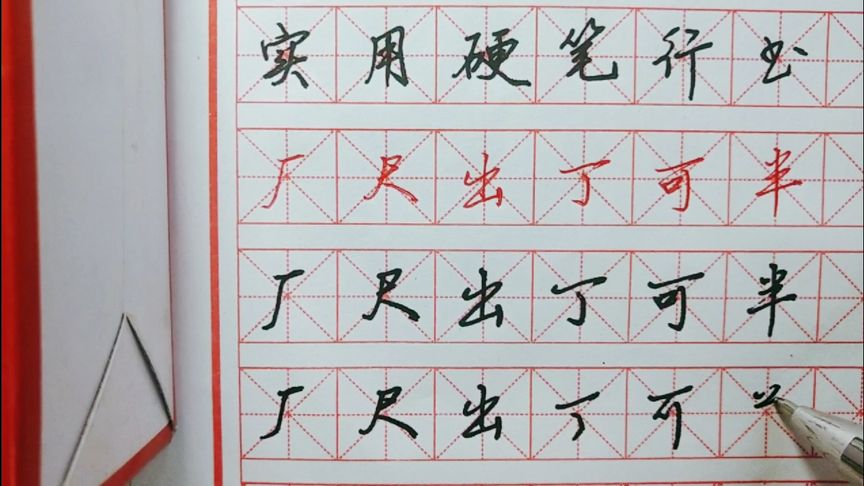 实用硬笔行书
厂尺出丁可半
厂尺出丁可半
厂尺出丁可